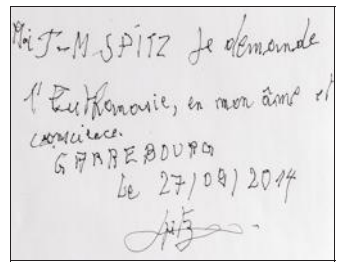 Moi J-M SPITZ Je demande
l'Euthanasie, en mon âme et
conscience.
GARREBOURG
Le 27/08/2014
Spitz